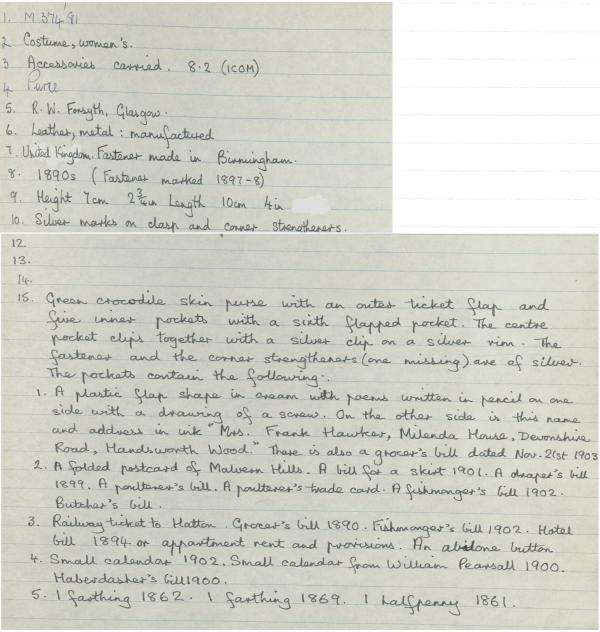 1. M 374'81
2 Costume, women's.
3 Accessories carried. 8.2 (ICOM)
4 Purse
5. R.W. Forsyth, Glasgow.
6. Leather, metal : manufactured
7. United Kingdom. Fastener made in Birmingham.
8. 1890s (Fastener marked 1897-8)
9. Height 7cm 2 3/4 in Length 10cm 4in
10. Silver marks on clasp and corner strengtheners.
12.
13.
14.
15. Green crocodile skin purse with an outer ticket flap and
five inner pockets with a sixth flapped pocket. The centre
pocket clips together with a silver clip on a silver rim. The
fastener and the corner strengtheners (one missing) are of silver.
The pockets contain the following:.
1. A plastic flap shape in cream with poems written in pencil on one
side with a drawing of a screw. On the other side is this name
and address in ink "Mrs. Frank Hawker, Milenda House, Devonshire
Road, Handsworth Wood." There is also a grocer's bill dated Nov. 21st 1903
2. A folded postcard of Malvern Hills. A bill for a skirt 1901. A draper's bill
1899. A poulterer's bill. A poulterer's trade card. A fishmonger's bill 1902.
Butcher's bill.
3. Railway ticket to Hatton. Grocer's bill 1890. Fishmonger's bill 1902. Hotel
bill 1894 or appartment rent and provisions. An abalone button
4. Small calendar 1902. Small calendar from William Pearsall 1900.
Haberdasher's bill 1900.
5. 1 farthing 1862. 1 farthing 1869. 1 halfpenny 1861.